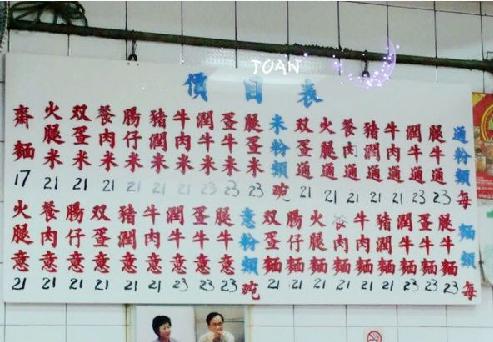 JOAN
價目表
通粉類每
腿牛通 23
潤牛通 23
牛肉通 21
豬潤通 21
餐肉通 21
火腿通 21
双蛋通 21
米粉類碗
腿蛋米 23
蛋牛米 23
潤牛米 23
牛肉米 21
豬潤米 21
腸仔米 21
餐肉米 21
双蛋米 21
火腿米 21
齋麵 17
麵類每
腿牛麵 23
蛋牛麵 23
潤牛麵 23
豬潤麵 21
牛肉麵 21
餐肉麵 21
火腿麵 21
腸仔麵 21
双蛋麵 21
意粉類碗
腿牛意 23
蛋牛意 23
潤牛意 23
牛肉意 21
豬潤意 21
双蛋意 21
腸仔意 21
餐肉意 21
火腿意 21